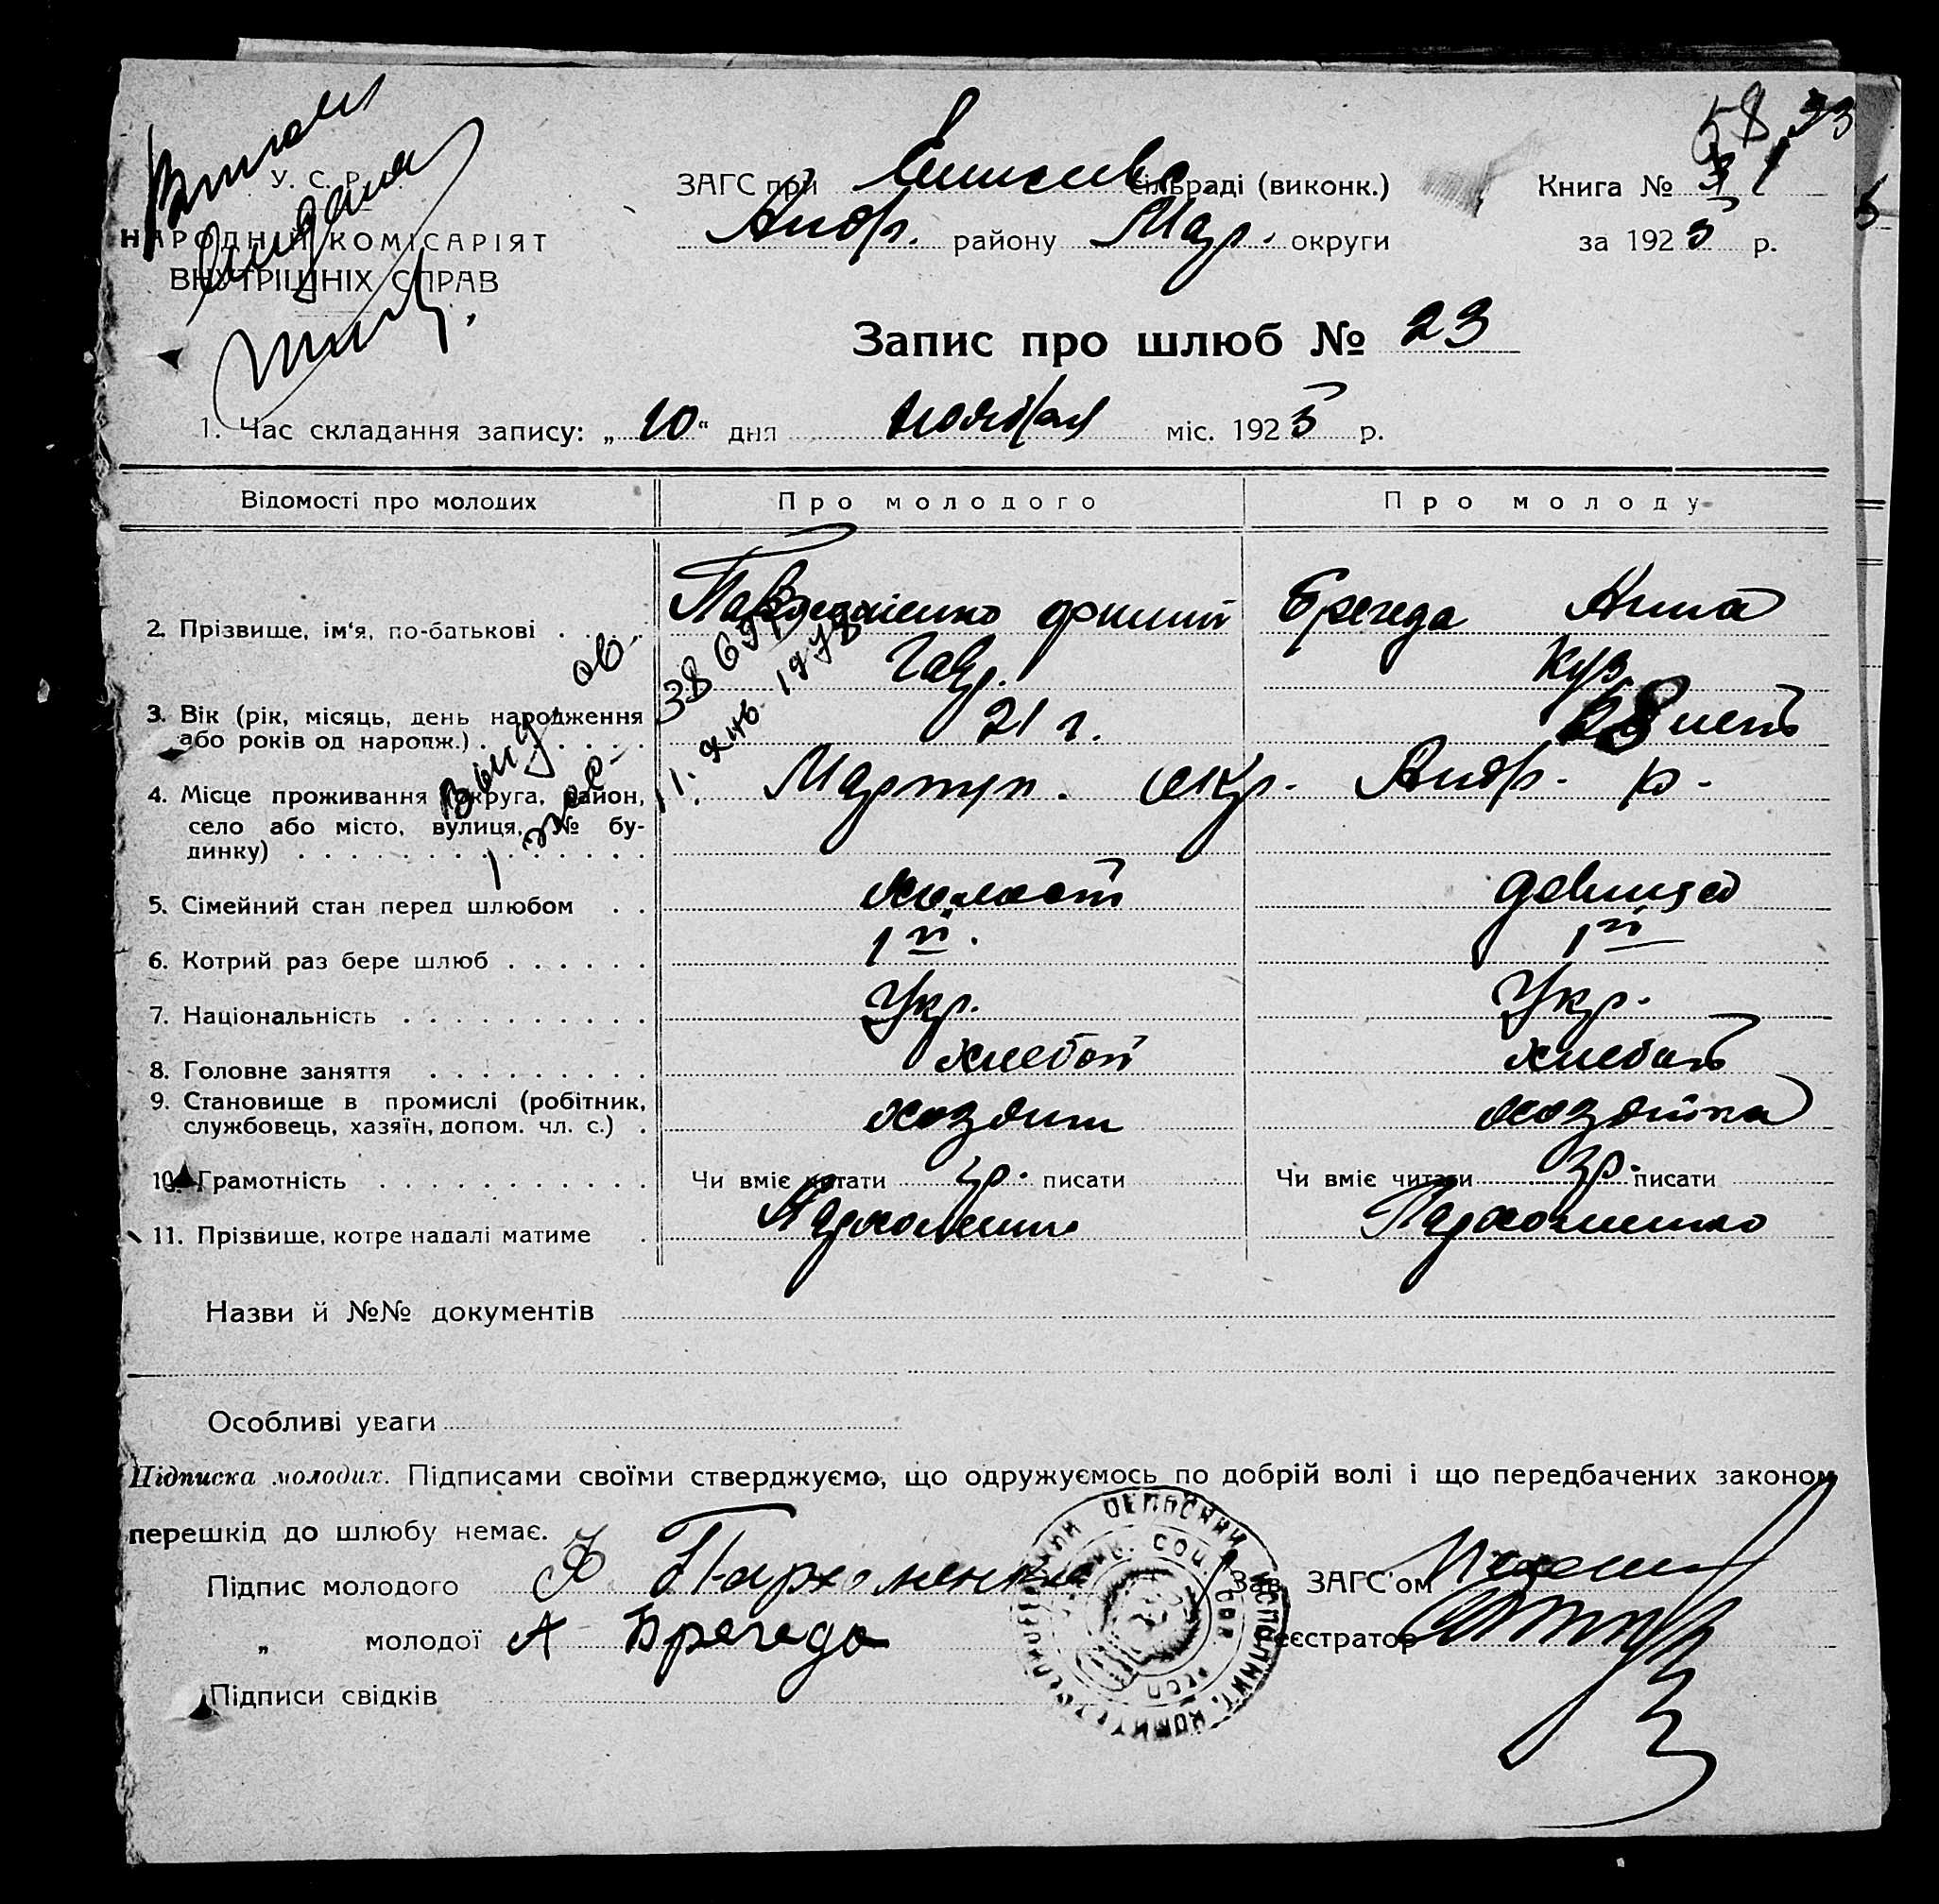 У. С. Р. Р.
НАРОДНИЙ КОМІСАРІЯТ
ВНУТРІШНІХ СПРАВ
ЗАГС при сільраді (виконк.)
Андр. району Мар. округи
Книга №
за 1925 р.
58
Запис про шлюб № 23
1. Час складання запису: „10“ дня ноября міс. 1925 р.
Відомості про молодих Про молодого Про молоду
2. Прізвище, ім'я, по-батькові Брегеда Анна
Гавр. Куз.
3. Вік (рік, місяць, день народження
або років од народж.) 21 г. 28 лет
4. Місце проживання (округа, район,
село або місто, вулиця, № бу-
динку)
Мариуп. окр. Андр. р-
5. Сімейний стан перед шлюбом холост девица
6. Котрий раз бере шлюб 1й 1й
7. Національність Укр. Укр.
8. Головне заняття хлебоп хлебоп
9. Становище в промислі (робітник,
службовець, хазяїн, допом. чл. с.) хозяин хозяйка
10. Грамотність Чи вміє читати гр. писати Чи вміє читати гр. писати
11. Прізвище, котре надалі матиме Пархоменко Пархоменко
Назви й №№ документів
Особливі уваги
Підписка молодих. Підписами своїми стверджуємо, що одружуємось по добрій волі і що передбачених законом
перешкід до шлюбу немає.
Підпис молодого Ф Пархоменко Зав. ЗАГС'ом
„ молодої А Брегеда Реєстратор
Підписи свідків